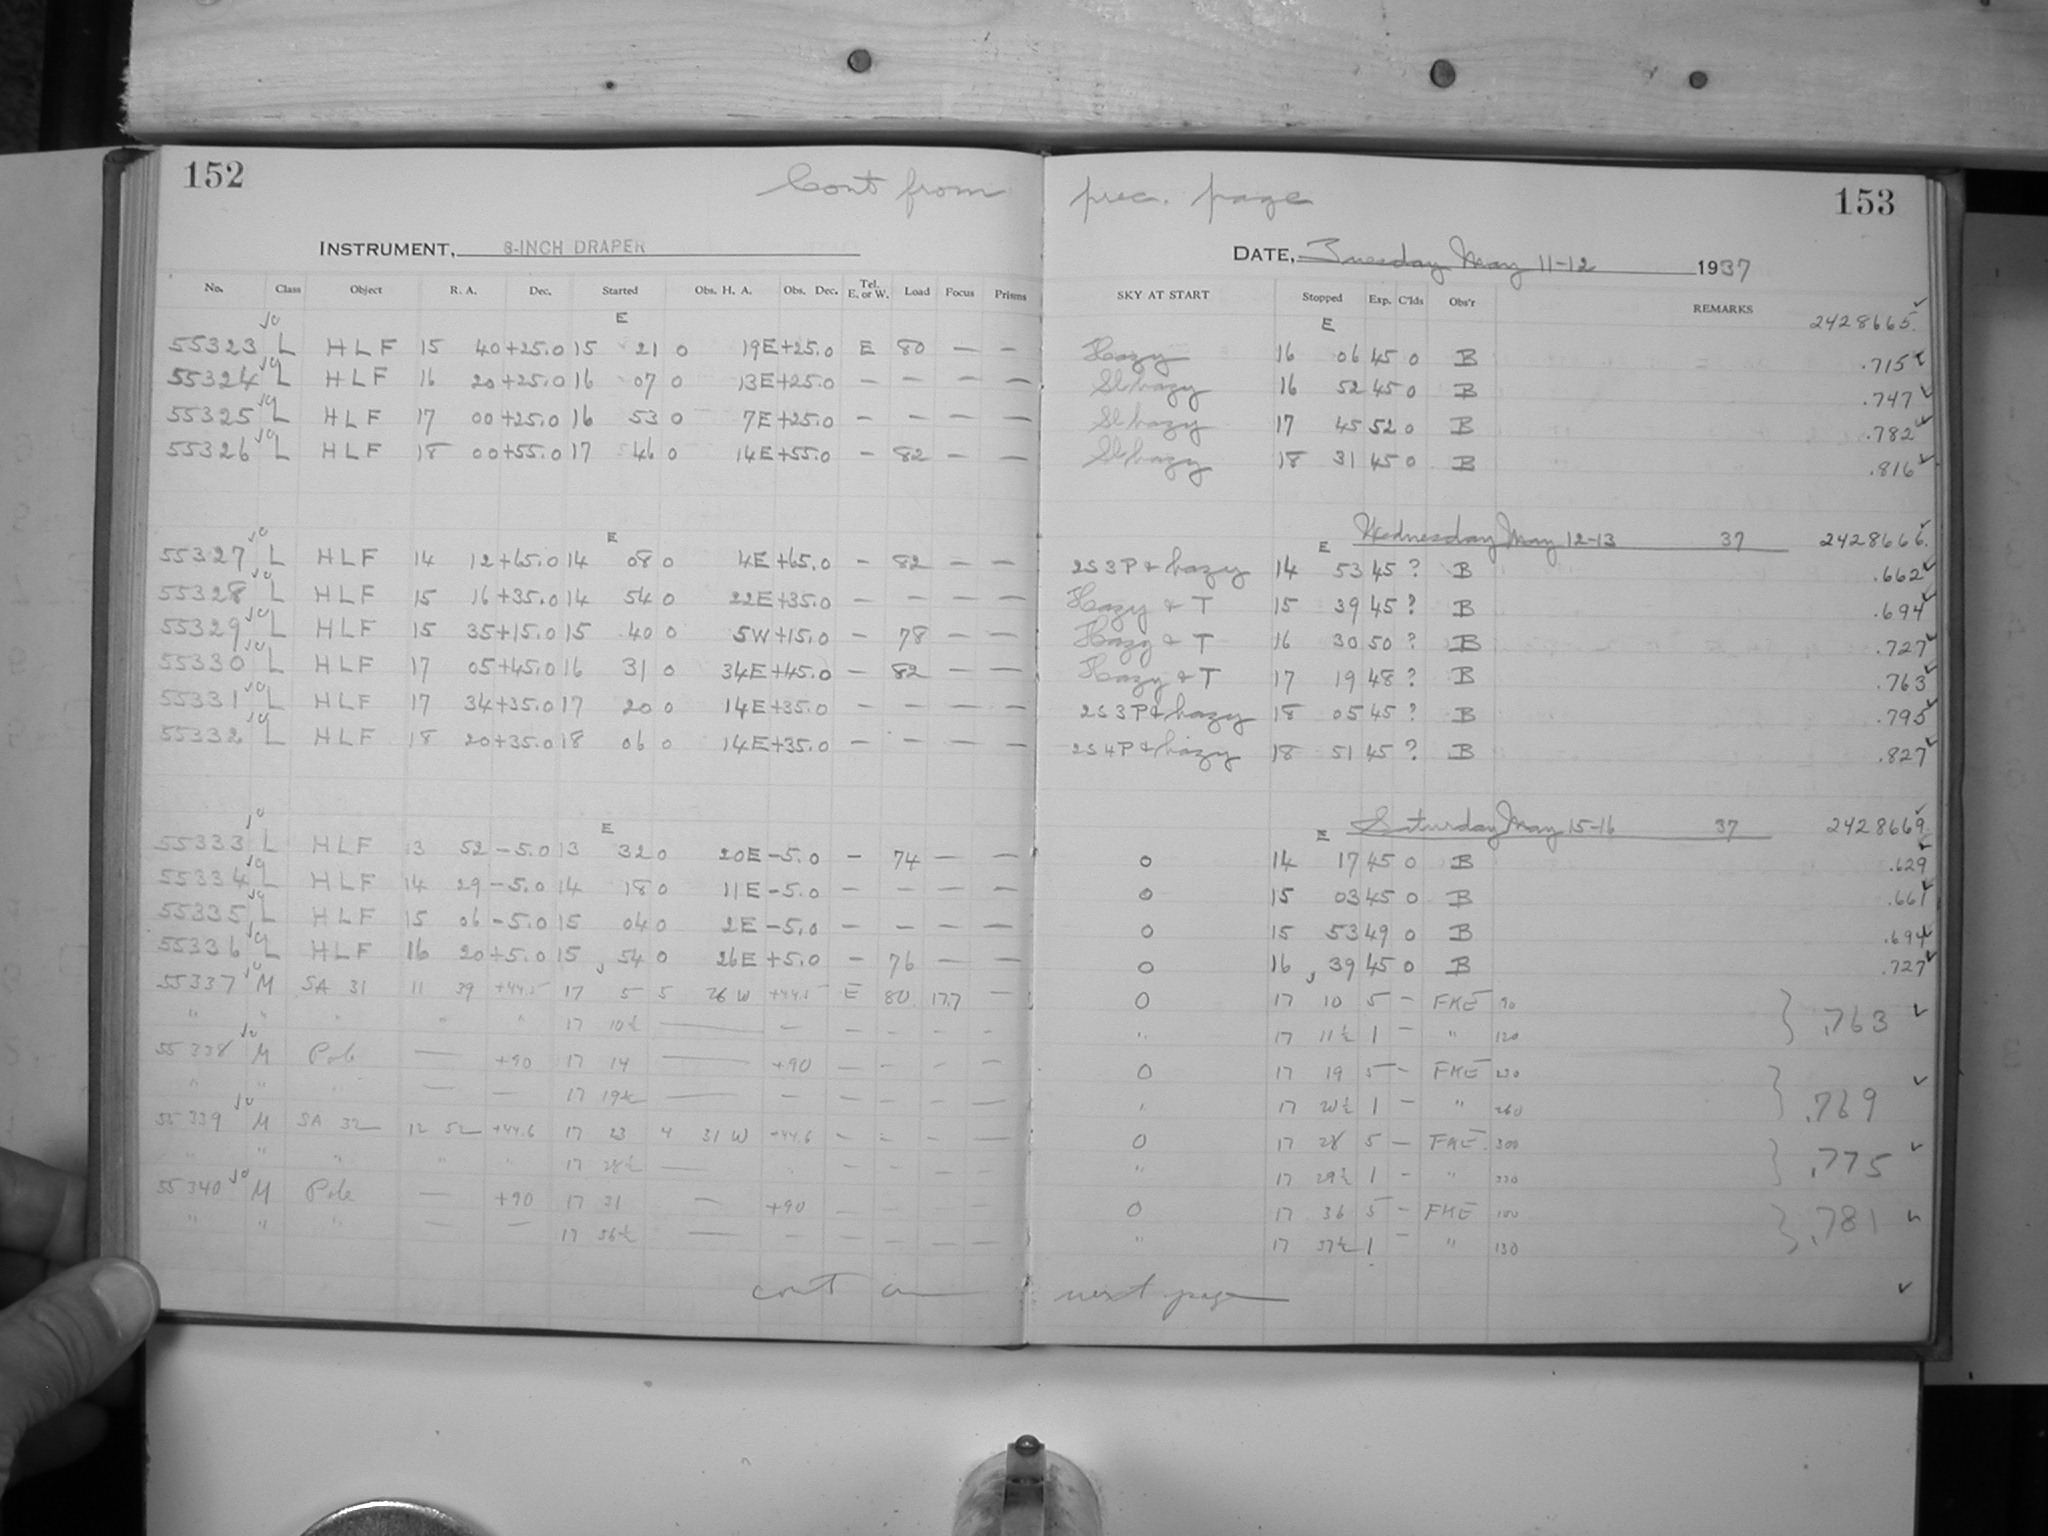 152 Cont from prec. page 153
INSTRUMENT, 8-INCH DRAPER DATE, Tuesday May 11-12 1937
No. Class Object R. A. Dec. Started Obs. H. A. Obs. Dec. Tel. E. or W. Load Focus Prisms SKY AT START Stopped Exp. C'lds Obs'r REMARKS
E E 2428665.
55323 L HLF 15 40 +25.0 15 21 0 19E +25.0 E 80 — — Hazy 16 06 45 0 B .715
55324 L HLF 16 20 +25.0 16 07 0 13E +25.0 — — — — Sl hazy 16 52 45 0 B .747
55325 L HLF 17 00 +25.0 16 53 0 7E +25.0 — — — — Sl hazy 17 45 52 0 B .782
55326 L HLF 18 00 +55.0 17 46 0 14E +55.0 — 82 — — Sl hazy 18 31 45 0 B .816
Wednesday May 12-13 37 2428666.
E E
55327 L HLF 14 12 +65.0 14 08 0 4E +65.0 — 82 — — 2S3P + hazy 14 53 45 ? B .662
55328 L HLF 15 16 +35.0 14 54 0 22E +35.0 — — — — Hazy + T 15 39 45 ? B .694
55329 L HLF 15 35 +15.0 15 40 0 5W +15.0 — 78 — — Hazy + T 16 30 50 ? B .727
55330 L HLF 17 05 +45.0 16 31 0 34E +45.0 — 82 — — Hazy + T 17 19 48 ? B .763
55331 L HLF 17 34 +35.0 17 20 0 14E +35.0 — — — — 2S3P + hazy 18 05 45 ? B .795
55332 L HLF 18 20 +35.0 18 06 0 14E +35.0 — — — — 2S4P + hazy 18 51 45 ? B .827
Saturday May 15-16 37 2428669.
E E
55333 L HLF 13 52 -5.0 13 32 0 20E -5.0 — 74 — — 0 14 17 45 0 B .629
55334 L HLF 14 29 -5.0 14 18 0 11E -5.0 — — — — 0 15 03 45 0 B .661
55335 L HLF 15 06 -5.0 15 04 0 2E -5.0 — — — — 0 15 53 49 0 B .694
55336 L HLF 16 20 +5.0 15 54 0 26E +5.0 — 76 — — 0 16 39 45 0 B .727
55337 M SA 31 11 39 +44.5 17 5 5 26 W +44.5 E 80 17.7 — 0 17 10 5 — FKE 90
" " " " " 17 10½ — — — — — — " 17 11½ 1 — " 120 } .763
55338 M Pole — +90 17 14 — +90 — — — — 0 17 19 5 — FKE 230
" " " — — 17 19½ — — — — — — 17 20½ 1 — " 260 } .769
55339 M SA 32 12 52 +44.6 17 23 4 31 W +44.6 — — — — 0 17 28 5 — FKE 300
" " " " " 17 28½ — — — — — " 17 29½ 1 — " 330 } .775
55340 M Pole — +90 17 31 — +90 — — — — 0 17 36 5 — FKE 100
" " " — — 17 36½ — — — — — — " 17 37½ 1 — " 130 } .781
cont on next page